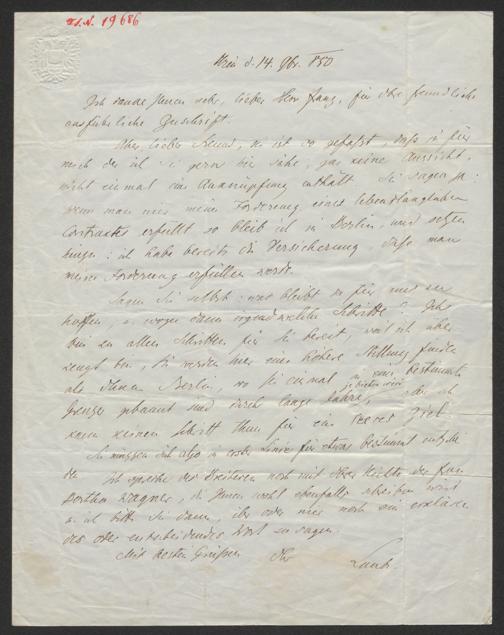 I.N. 19686
Wien d. 14. 9br. 850
Ich danke Ihnen sehr, lieber Herr, für Ihre freundliche
ausführliche Zuschrift.
Aber, lieber Freund, sie ist so gefaßt, daß für
mich der ich Sie gern hier sähe, gar keine Aussicht,
nicht einmal eine Anknüpfung enthält. Sie sagen ja:
wenn man mir meine Forderung eines lebenslänglichen
Contractes erfüllt so bleib ich in Berlin, und setzen
hinzu: ich habe bereits die Versicherung, daß man
meine Forderung erfüllen werde.
Sagen Sie selbst: was bleibt da für uns zu
hoffen, u. wozu dann irgendwelche Schritte? Ich
bin zu allen Schritten für Sie bereit, weil ich über
zeugt bin, Sie werden hier eine höhere Stellung finden
als Ihnen Berlin, wo Sie einmal in eine bestimmte
Grenze gebannt sind durch lange Jahre, aber ich
kann keinen Schritt thun für ein leeres Ziel.
Sie müssen sich also in erster Linie für etwas bestimmt entschei
den. Ich sprach des Breiteren noch mit
Wagner, der Ihnen wohl ebenfalls schreiben wird
u. ich bitte Sie dann, ihm oder mir noch ein erklären
des oder entscheidendes Wort zu sagen.
Mit besten Grüßen Ihr Laube